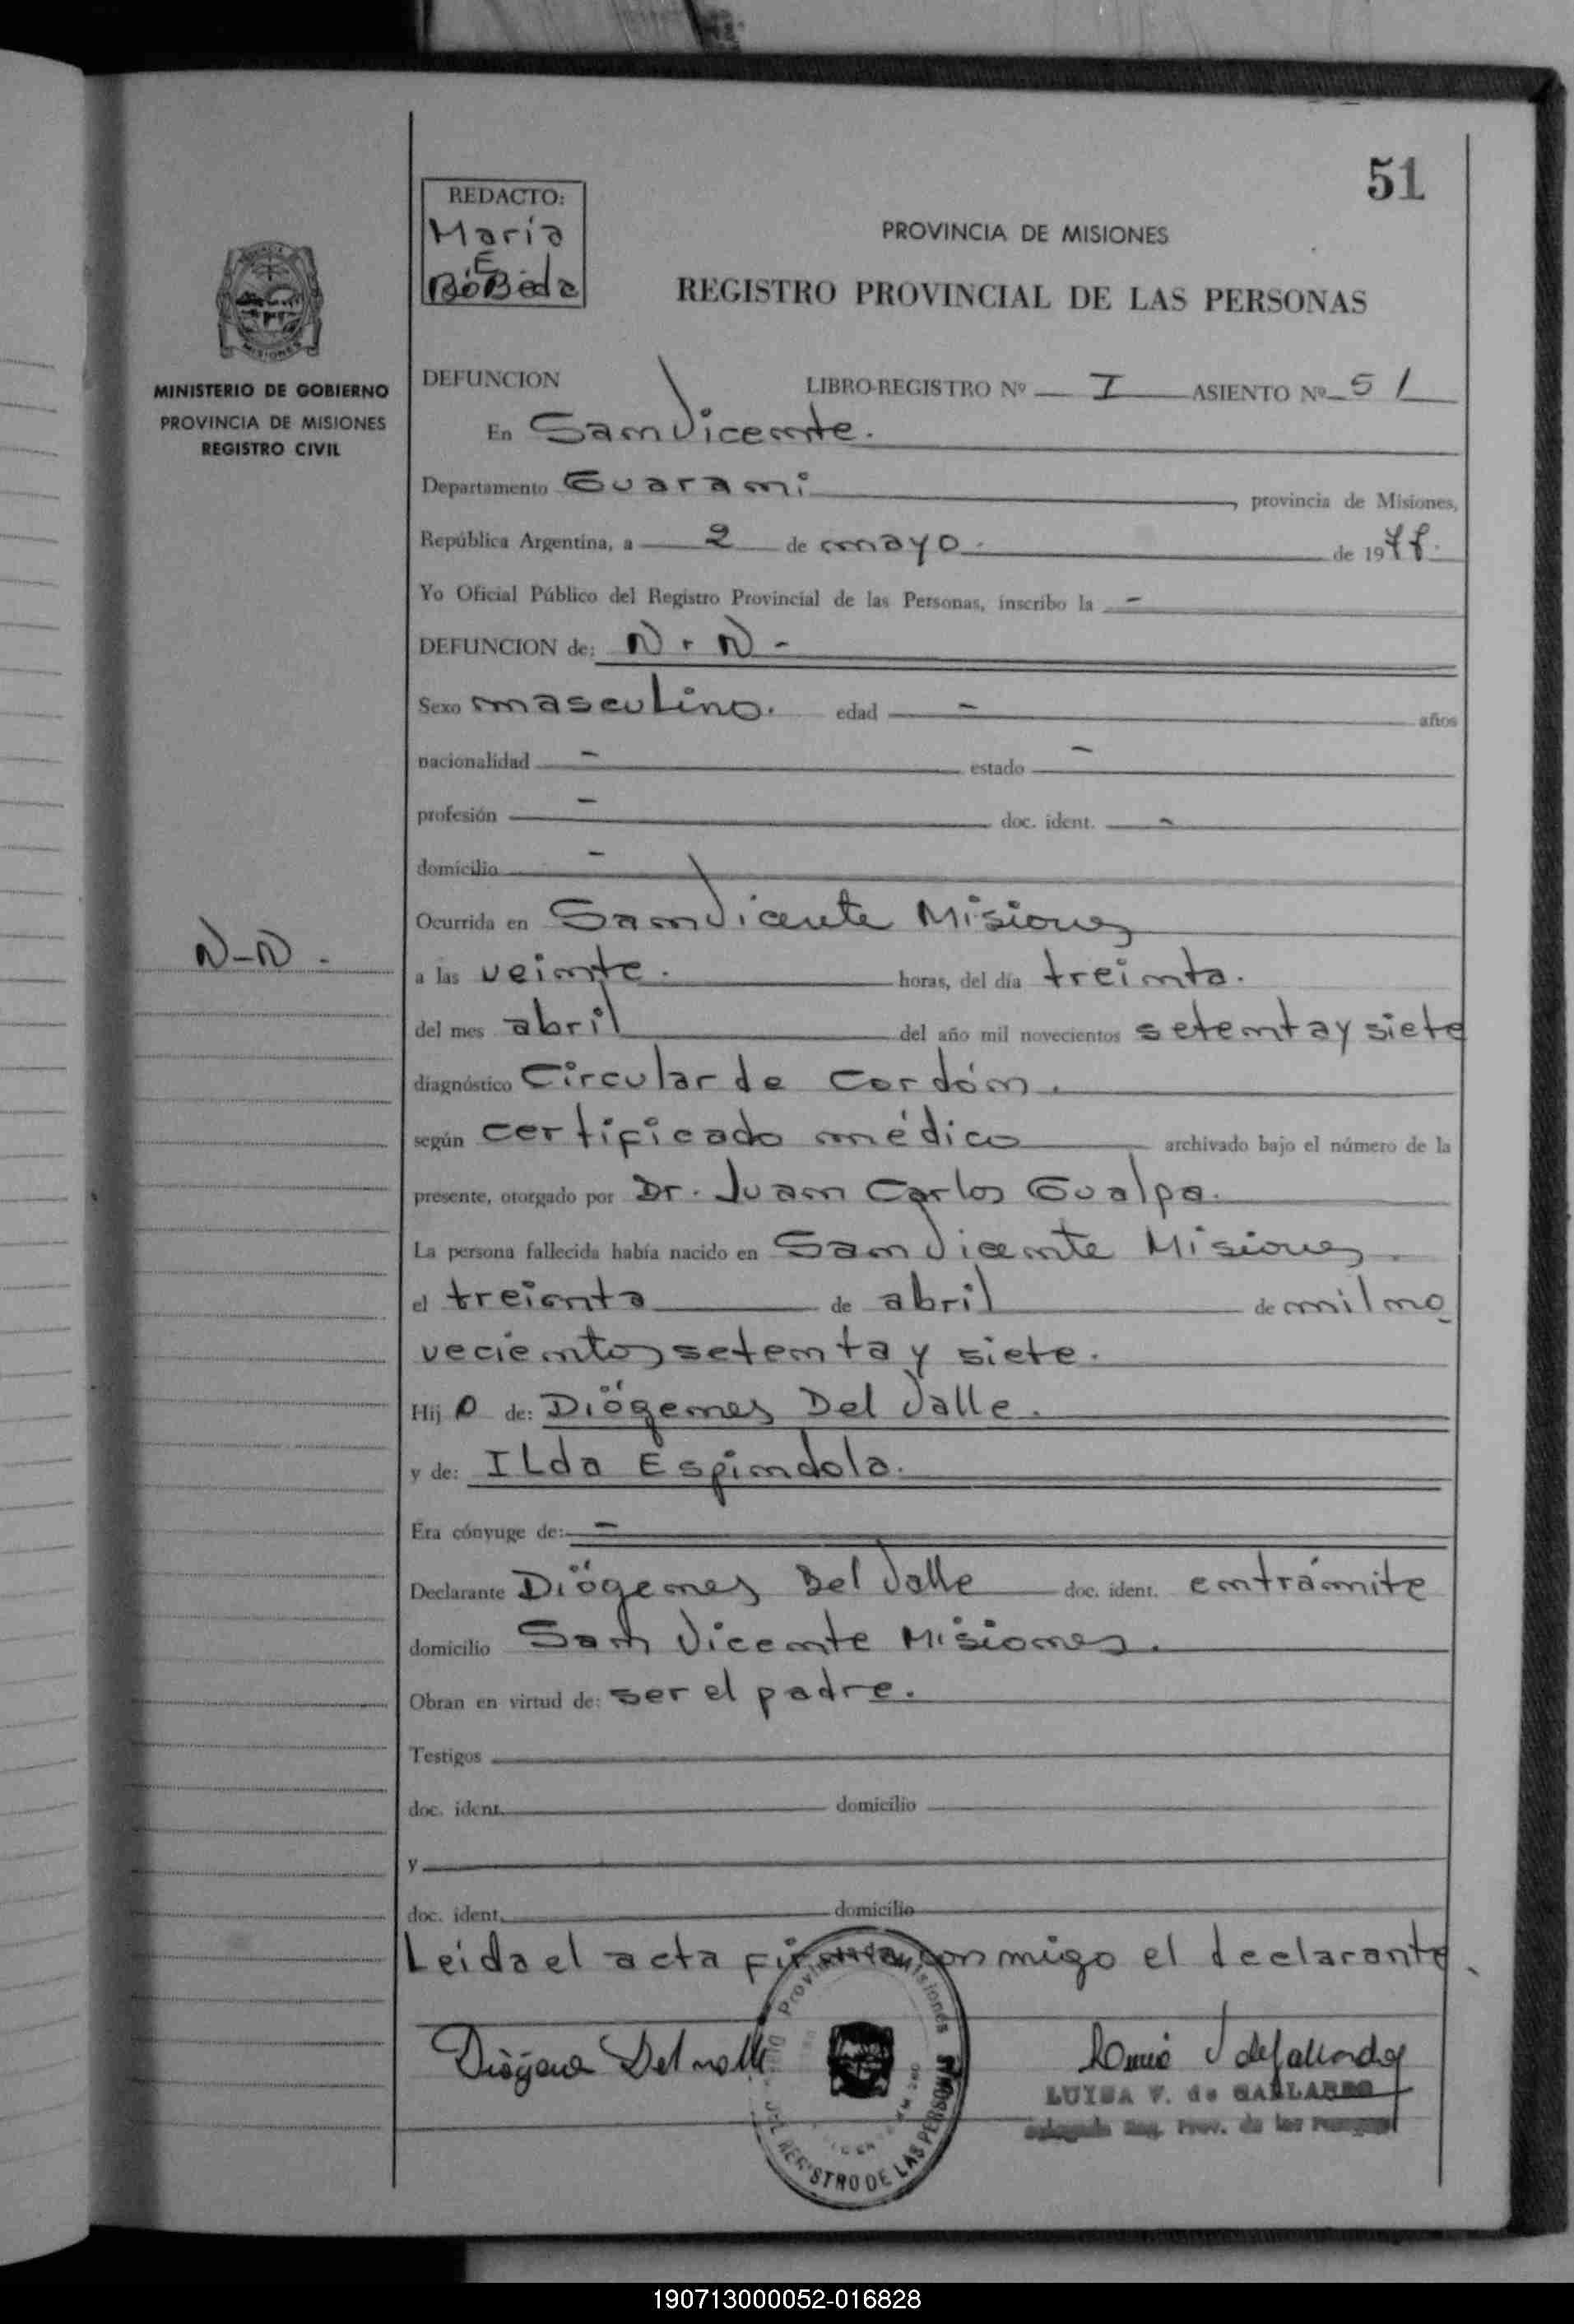 51
REDACTO:
María
E.
BóBeda
PROVINCIA DE MISIONES
REGISTRO PROVINCIAL DE LAS PERSONAS
MINISTERIO DE GOBIERNO
PROVINCIA DE MISIONES
REGISTRO CIVIL
DEFUNCION LIBRO-REGISTRO Nº I ASIENTO Nº 51
En San Vicente.
Departamento Guaraní, provincia de Misiones,
República Argentina, a 2 de mayo. de 1977.
Yo Oficial Público del Registro Provincial de las Personas, inscribo la -
DEFUNCION de: N. N -
Sexo masculino. edad - años
nacionalidad - estado -
profesión - doc. ident. -
domicilio -
Ocurrida en San Vicente Misiones
N-N -
a las veinte. horas, del día treinta.
del mes abril del año mil novecientos setenta y siete
diagnóstico Circular de cordón.
según certificado médico archivado bajo el número de la
presente, otorgado por Dr. Juan Carlos Gualpa.
La persona fallecida había nacido en San Vicente Misiones
el treinta de abril de mil no
vecientos setenta y siete.
Hij o de: Diógenes Del Valle.
y de: ILda Espindola.
Era cónyuge de: -
Declarante Diógenes Del Valle doc. ident. en trámite
domicilio San Vicente Misiones.
Obran en virtud de: ser el padre.
Testigos
doc. ident. domicilio
y
doc. ident. domicilio
Leida el acta firma con migo el declarante.
Provincia de Misiones
DEL REGISTRO DE LAS PERSONAS
Diógene Del valle
LUISA V. de GALLARDO
Delegada Reg. Prov. de las Personas
190713000052-016828